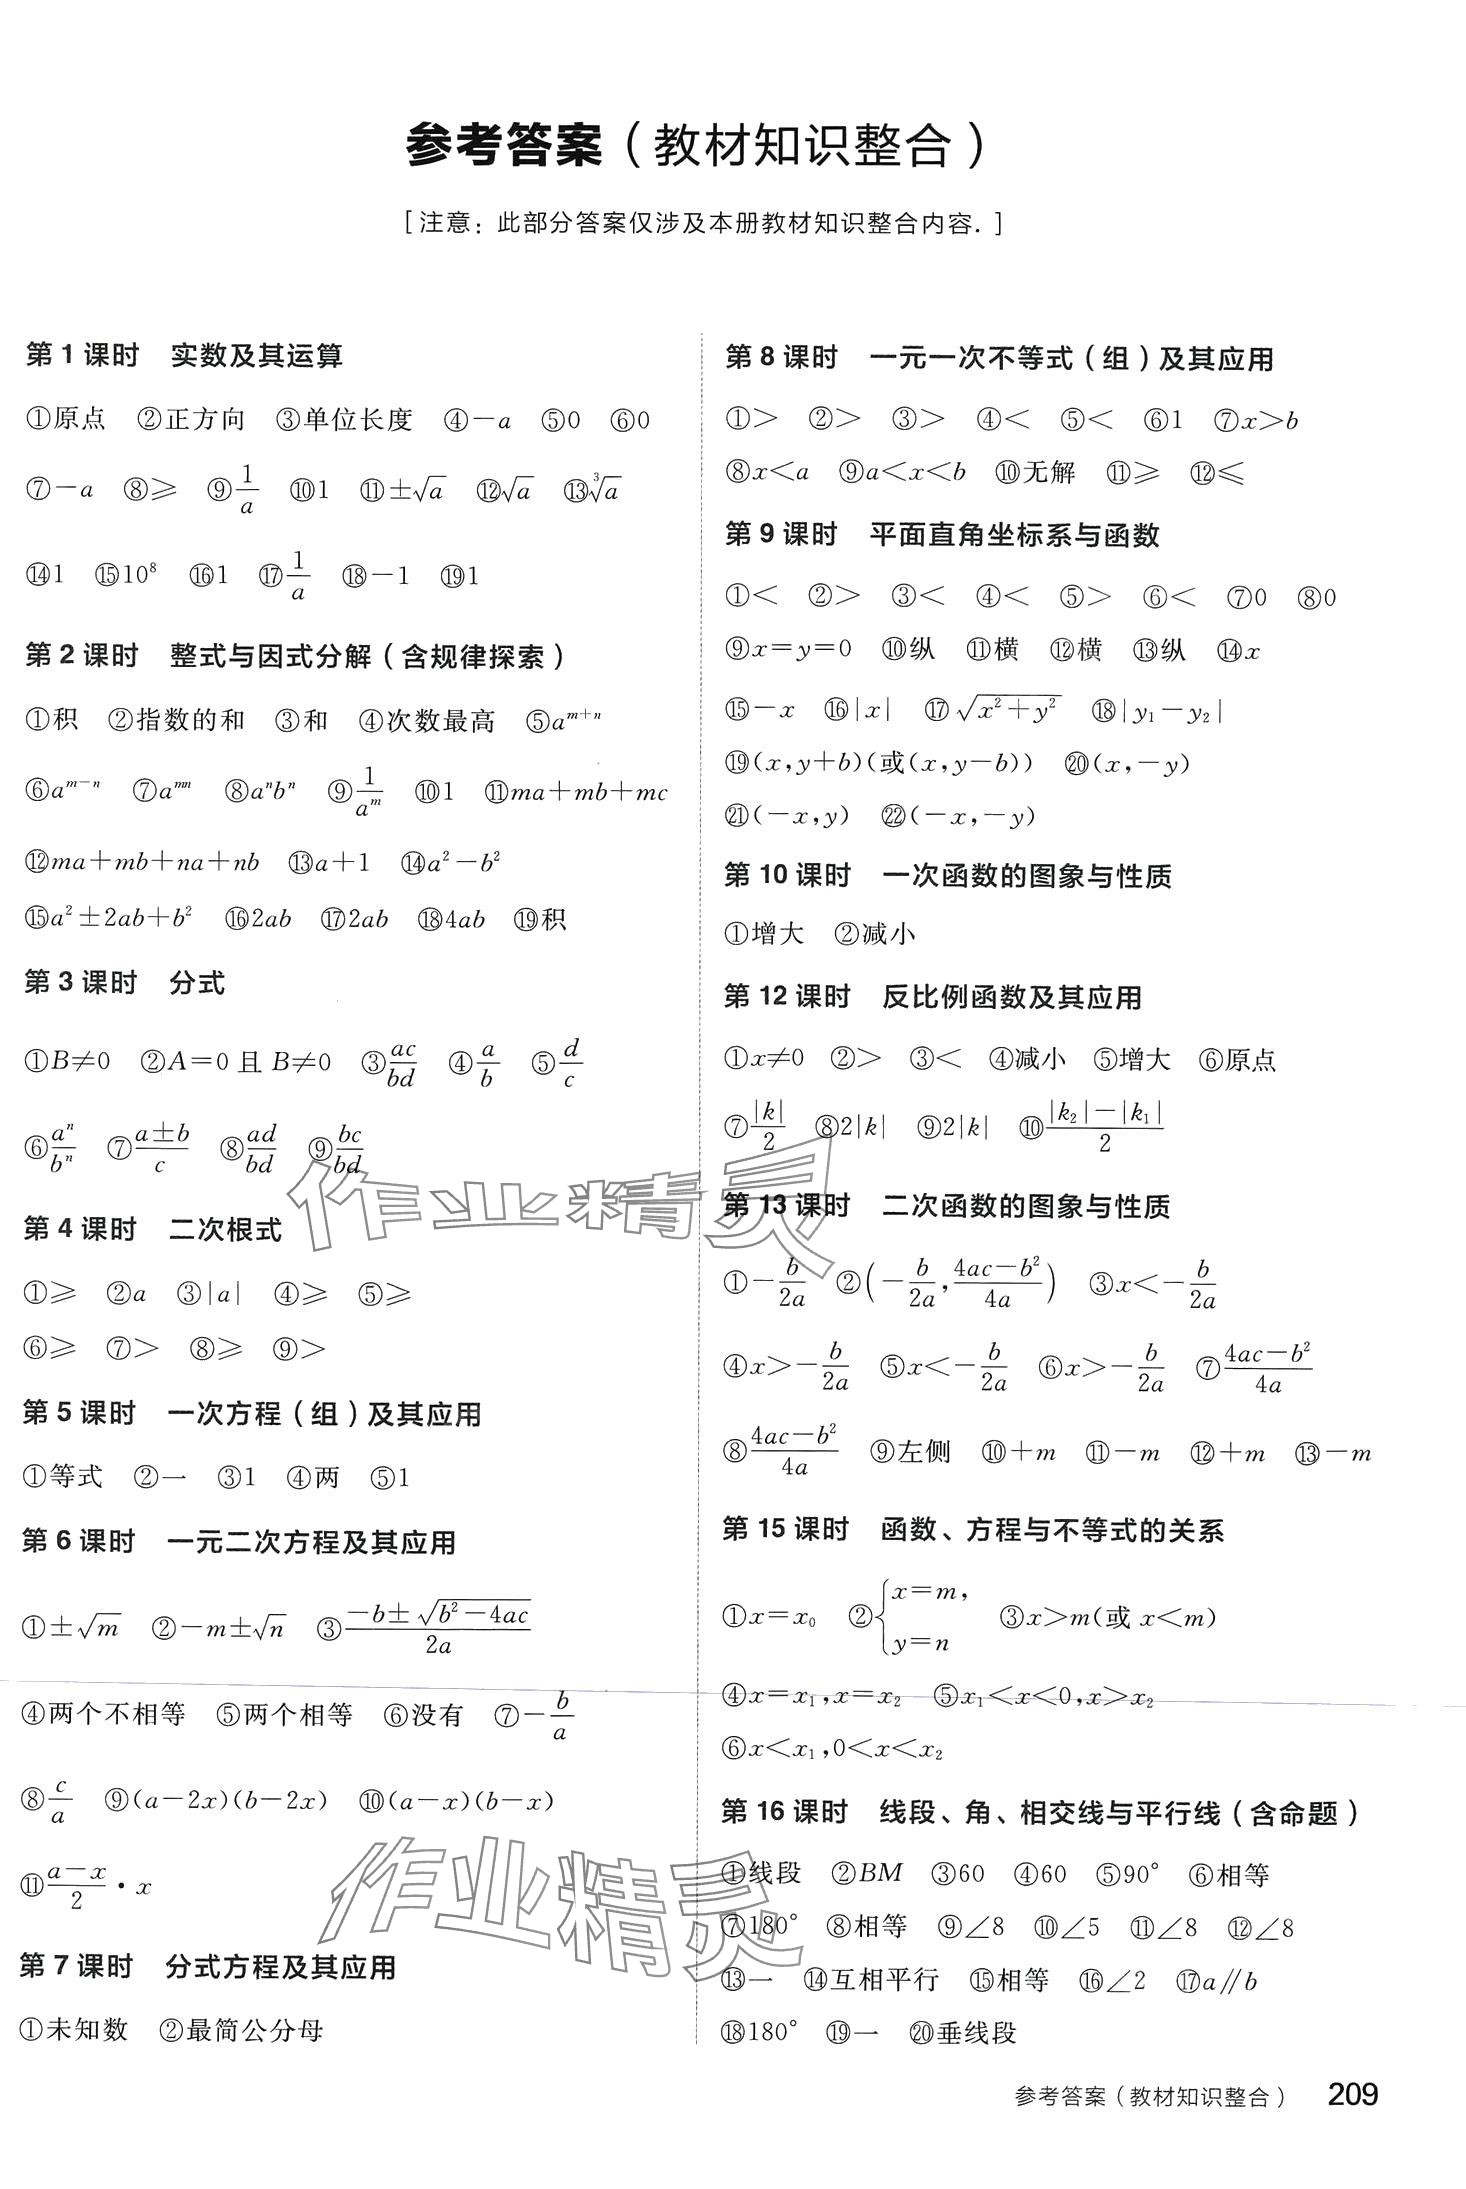 参考答案（教材知识整合）
[注意：此部分答案仅涉及本册教材知识整合内容．]
第 1 课时　实数及其运算
①原点　②正方向　③单位长度　④－a　⑤0　⑥0
⑦－a　⑧≥　⑨\frac{1}{a}　⑩1　⑪±√a　⑫√a　⑬∛a
⑭1　⑮10⁸　⑯1　⑰\frac{1}{a}　⑱－1　⑲1
第 2 课时　整式与因式分解（含规律探索）
①积　②指数的和　③和　④次数最高　⑤a^{m+n}
⑥a^{m-n}　⑦a^{mn}　⑧aⁿbⁿ　⑨\frac{1}{a^m}　⑩1　⑪ma＋mb＋mc
⑫ma＋mb＋na＋nb　⑬a＋1　⑭a²－b²
⑮a²±2ab＋b²　⑯2ab　⑰2ab　⑱4ab　⑲积
第 3 课时　分式
①B≠0　②A＝0 且 B≠0　③\frac{ac}{bd}　④\frac{a}{b}　⑤\frac{d}{c}
⑥\frac{a^n}{b^n}　⑦\frac{a±b}{c}　⑧\frac{ad}{bd}　⑨\frac{bc}{bd}
第 4 课时　二次根式
①≥　②a　③|a|　④≥　⑤≥
⑥≥　⑦>　⑧≥　⑨>
第 5 课时　一次方程（组）及其应用
①等式　②一　③1　④两　⑤1
第 6 课时　一元二次方程及其应用
①±√m　②－m±√n　③\frac{-b±\sqrt{b²-4ac}}{2a}
④两个不相等　⑤两个相等　⑥没有　⑦－\frac{b}{a}
⑧\frac{c}{a}　⑨(a－2x)(b－2x)　⑩(a－x)(b－x)
⑪\frac{a-x}{2}·x
第 7 课时　分式方程及其应用
①未知数　②最简公分母
第 8 课时　一元一次不等式（组）及其应用
①>　②>　③>　④<　⑤<　⑥1　⑦x>b
⑧x<a　⑨a<x<b　⑩无解　⑪≥　⑫≤
第 9 课时　平面直角坐标系与函数
①<　②>　③<　④<　⑤>　⑥<　⑦0　⑧0
⑨x＝y＝0　⑩纵　⑪横　⑫横　⑬纵　⑭x
⑮－x　⑯|x|　⑰\sqrt{x²+y²}　⑱|y₁－y₂|
⑲(x,y＋b)(或(x,y－b))　⑳(x,－y)
㉑(－x,y)　㉒(－x,－y)
第 10 课时　一次函数的图象与性质
①增大　②减小
第 12 课时　反比例函数及其应用
①x≠0　②>　③<　④减小　⑤增大　⑥原点
⑦\frac{|k|}{2}　⑧2|k|　⑨2|k|　⑩\frac{|k₂|-|k₁|}{2}
第 13 课时　二次函数的图象与性质
①－\frac{b}{2a}　②(－\frac{b}{2a},\frac{4ac-b²}{4a})　③x<－\frac{b}{2a}
④x>－\frac{b}{2a}　⑤x<－\frac{b}{2a}　⑥x>－\frac{b}{2a}　⑦\frac{4ac-b²}{4a}
⑧\frac{4ac-b²}{4a}　⑨左侧　⑩＋m　⑪－m　⑫＋m　⑬－m
第 15 课时　函数、方程与不等式的关系
①x＝x₀　②{x＝m,y＝n　③x>m(或 x<m)
④x＝x₁,x＝x₂　⑤x₁<x<0,x>x₂
⑥x<x₁,0<x<x₂
第 16 课时　线段、角、相交线与平行线（含命题）
①线段　②BM　③60　④60　⑤90°　⑥相等
⑦180°　⑧相等　⑨∠8　⑩∠5　⑪∠8　⑫∠8
⑬一　⑭互相平行　⑮相等　⑯∠2　⑰a∥b
⑱180°　⑲一　⑳垂线段
作业精灵
作业精灵
参考答案（教材知识整合）　209